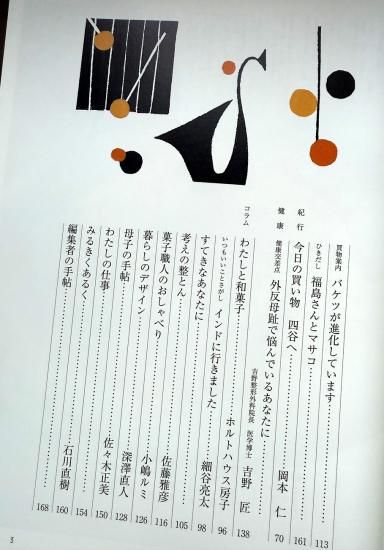 買物案内 バケツが進化しています……113
ひきだし 福島さんとマサコ……161
紀行 今日の買い物 四谷へ……岡本 仁 70
健康 健康交差点 外反母趾で悩んでいるあなたに……吉野整形外科院長 医学博士 吉野 匠 138
コラム わたしと和菓子……ホルトハウス房子 96
いつもいいことさがし インドに行きました……細谷亮太 98
すてきなあなたに……105
考えの整とん……佐藤雅彦 116
菓子職人のおしゃべり……小嶋ルミ 126
暮らしのデザイン……深澤直人 128
母子の手帖……佐々木正美 150
わたしの仕事……154
みるきくあるく……石川直樹 160
編集者の手帖……168
3